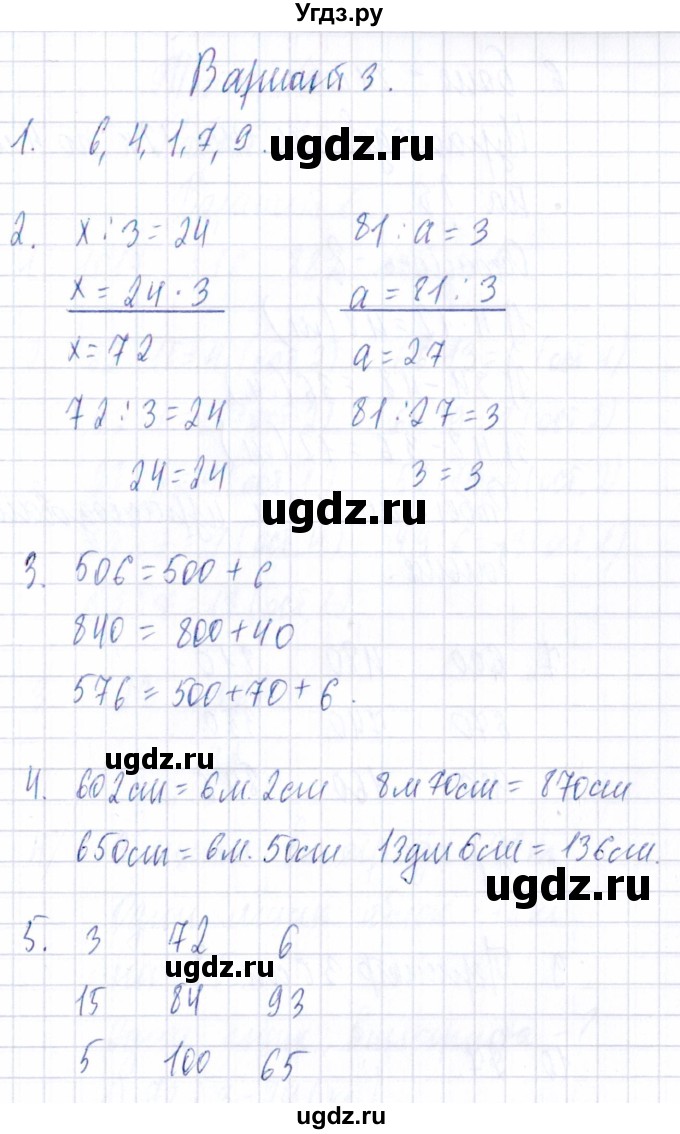 Угдз.ру
Вариант 3.
1. 6, 4, 1, 7, 9.
ugdz.ru
2. x : 3 = 24 81 : a = 3
x = 24 · 3 a = 81 : 3
x = 72 a = 27
72 : 3 = 24 81 : 27 = 3
24 = 24 3 = 3
ugdz.ru
3. 506 = 500 + 6
840 = 800 + 40
576 = 500 + 70 + 6.
ugdz.ru
4. 602см = 6м. 2см 8м 70см = 870см
650см = 6м. 50см 13дм 6см = 136см.
ugdz.ru
5. 3 72 6
ugdz.ru
15 84 93
5 100 65
ugdz.ru